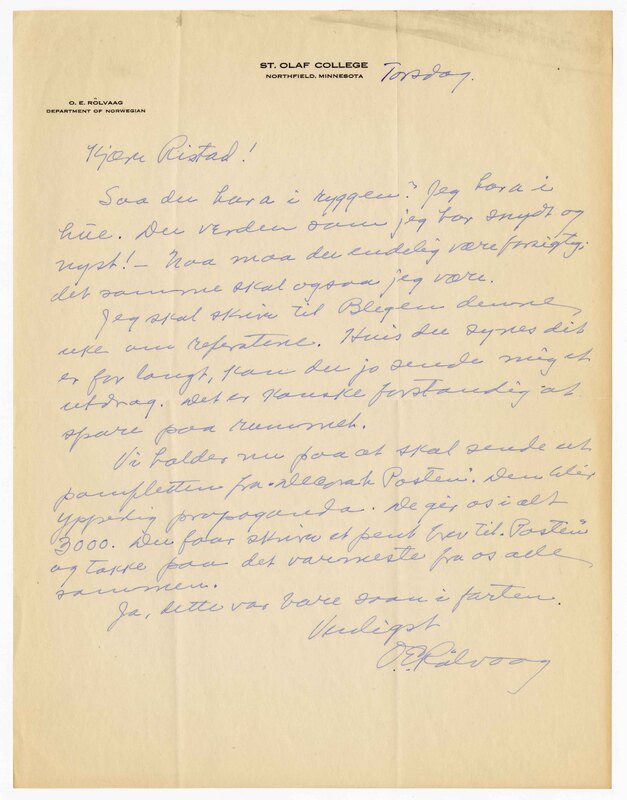 ST. OLAF COLLEGE
NORTHFIELD, MINNESOTA
Torsdag.
O. E. RÖLVAAG
DEPARTMENT OF NORWEGIAN
Kjære Ristad!
Saa du har a i ryggen? Jeg har a i
hue. Du verden som jeg har snydt og
nyst! — Naa maa du endelig være forsigtig;
det samme skal ogsaa jeg være.
Jeg skal skrive til Blegen denne
uke om referatene. Huis du synes dit
er for langt, kan du jo sende mig et
utdrag. Det er kanske forstandig at
spare paa rummet.
Vi holder nu paa at skal sende ut
pamfletten fra "Decorah Posten". Den blir
ypperlig propaganda. De gir os i alt
3000. Du faar skrive et pent brev til "Posten"
og takke paa det varmeste fra os alle
sammen.
Ja, dette var bare saan i farten.
Venligst
O.E. Rölvaag